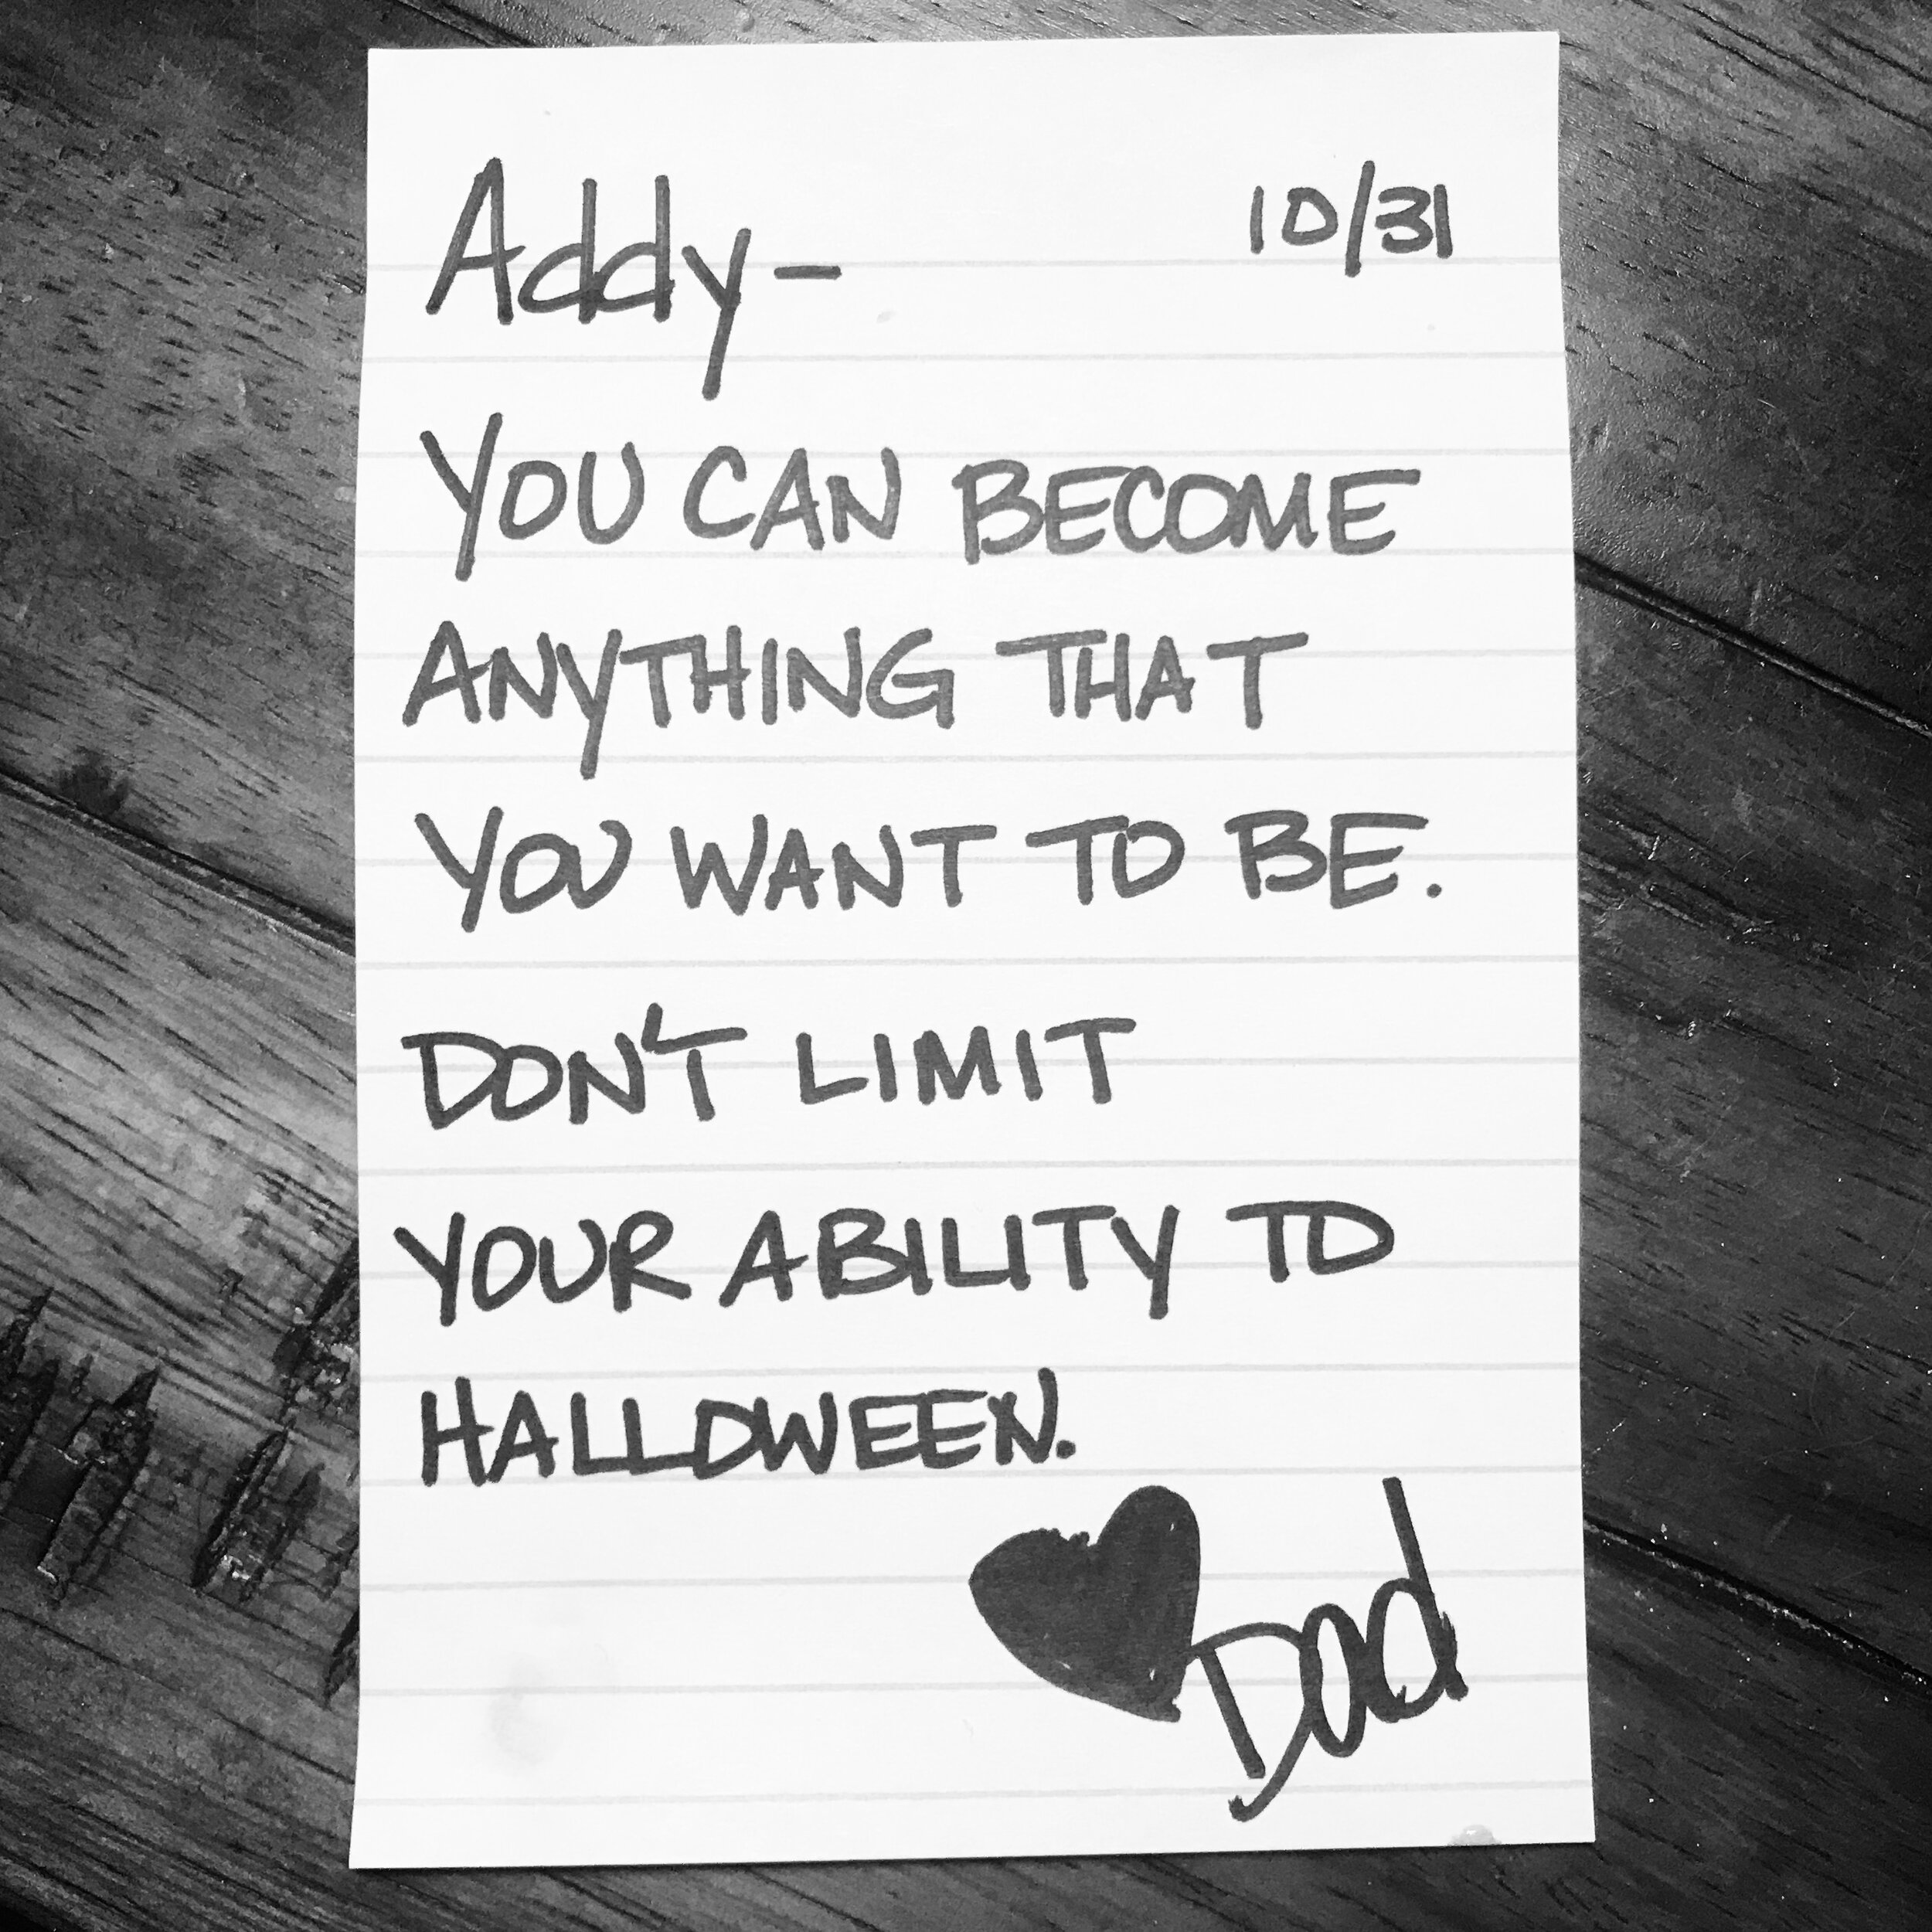 Addy- 10/31
YOU CAN BECOME
ANYTHING THAT
YOU WANT TO BE.
DON'T LIMIT
YOUR ABILITY TO
HALLOWEEN.
Dad